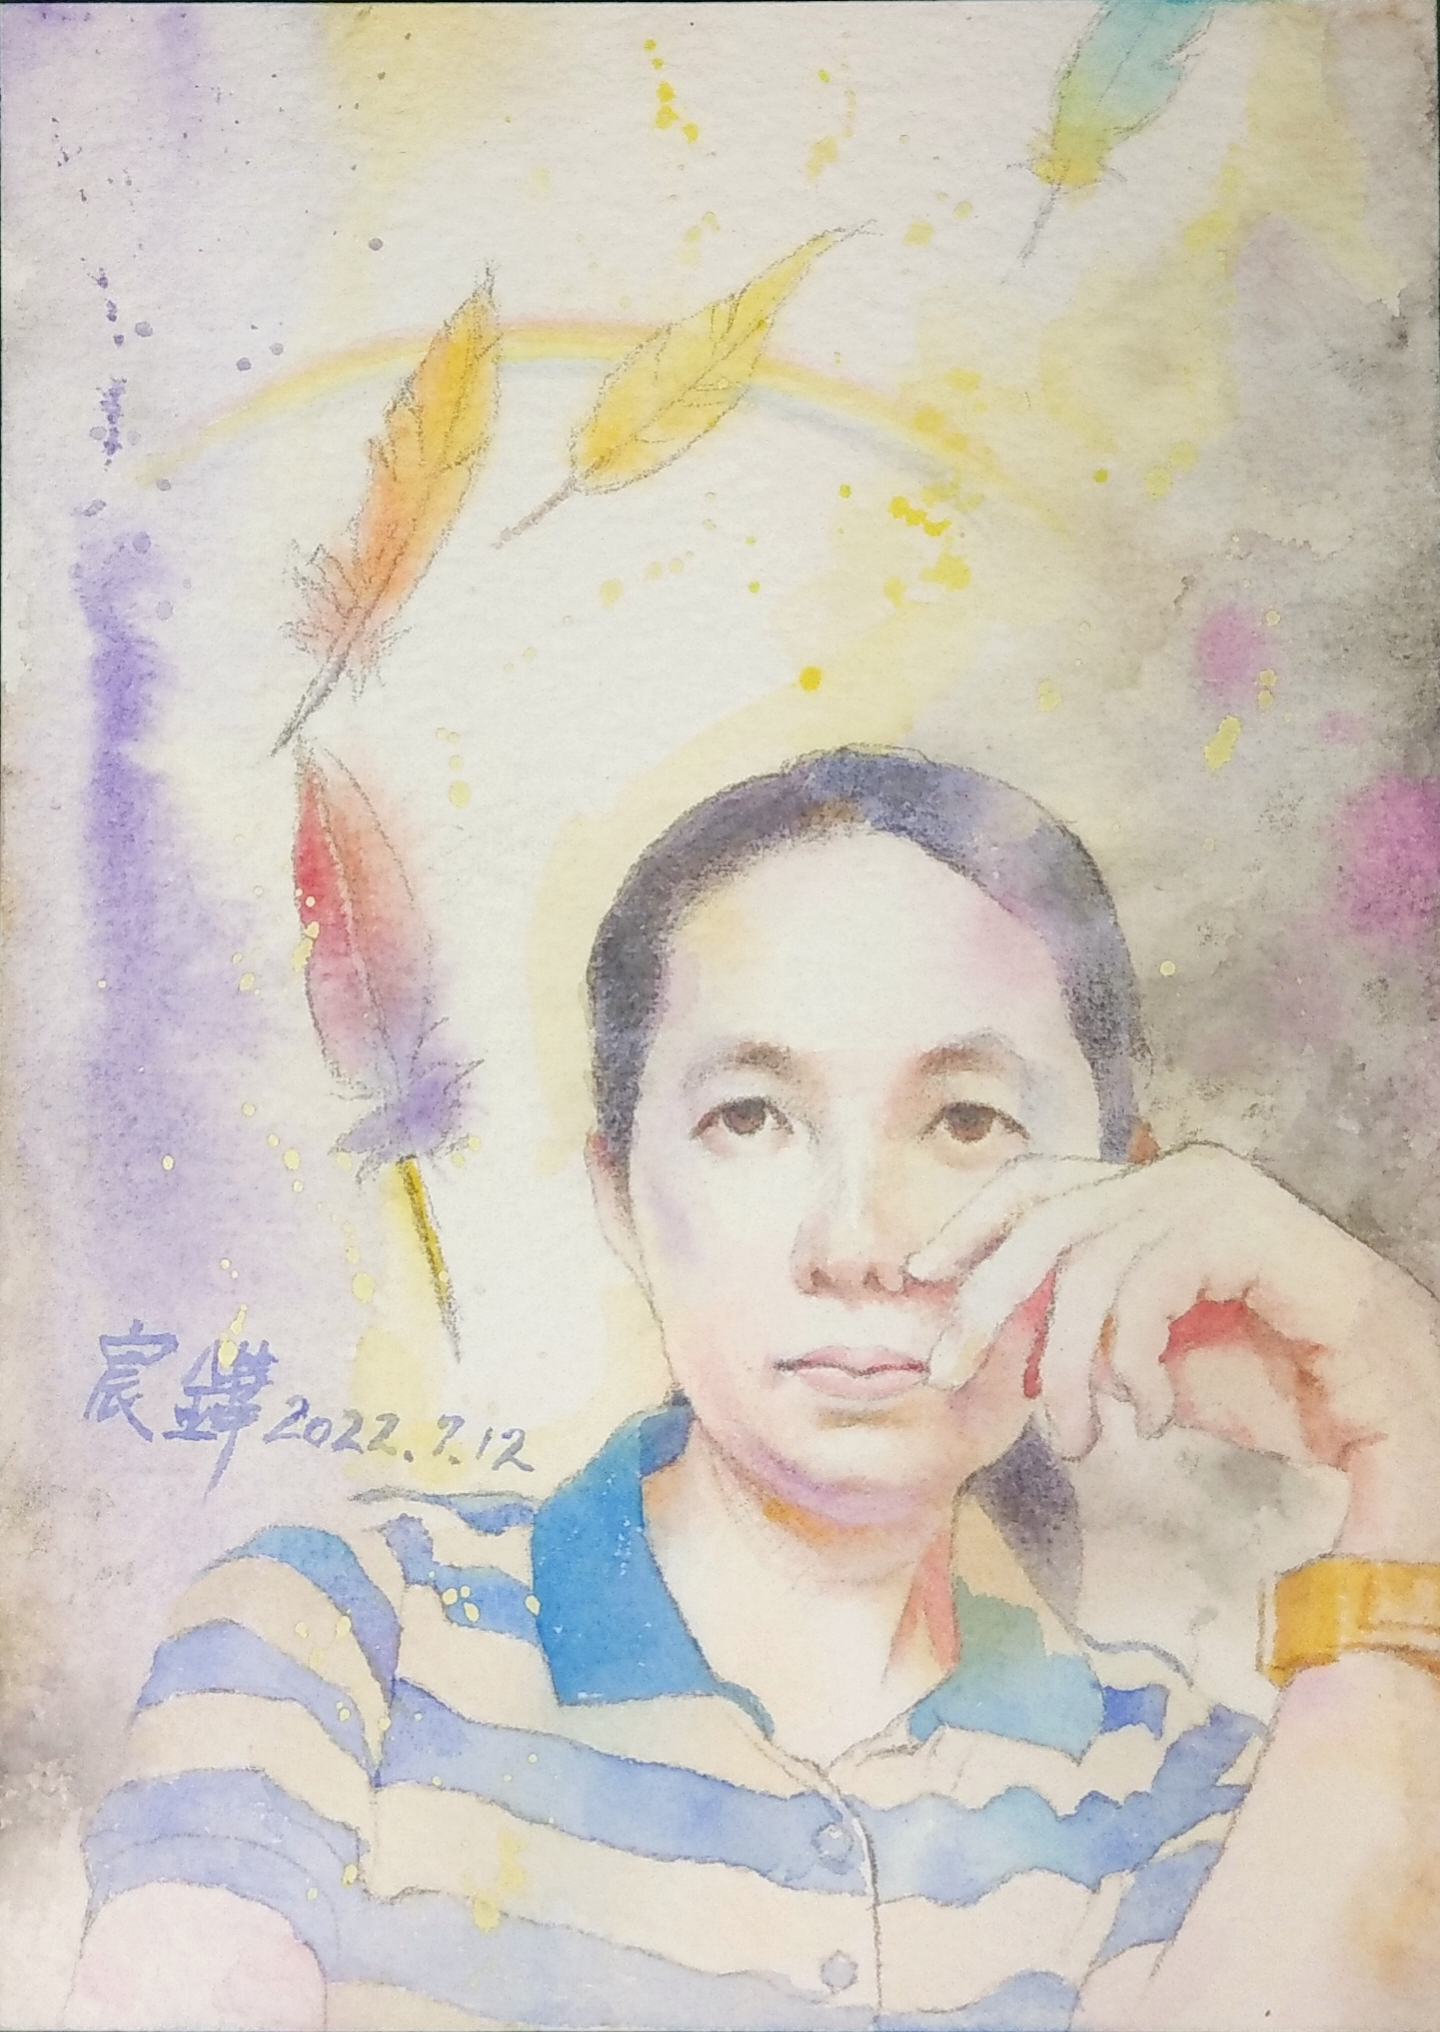 宸鏵 2022.7.12